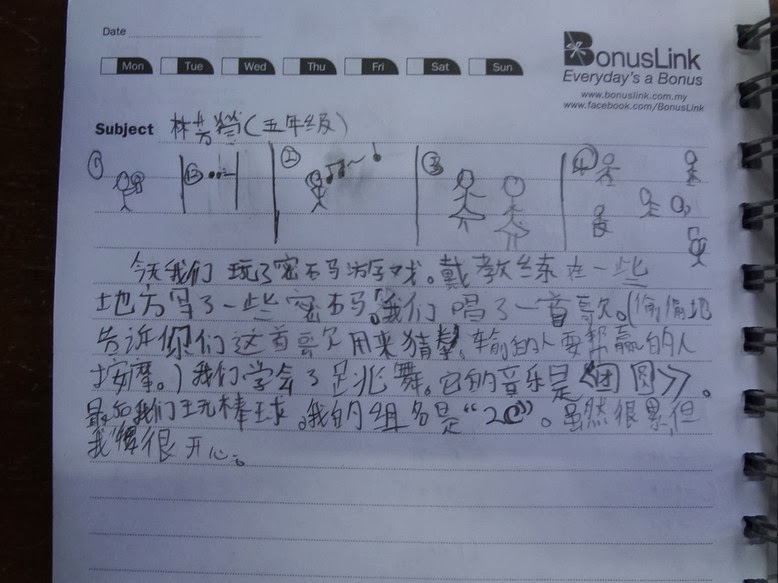 Date
Mon Tue Wed Thu Fri Sat Sun
BonusLink
Everyday's a Bonus
www.bonuslink.com.my
www.facebook.com/BonusLink
Subject 林芳 (五年级)
① ② ③ ④
今天我们玩了密码游戏。戴教练在一些
地方写了一些密码。我们唱了一首歌。(偷偷地
告诉你们这首歌用来猜拳,输的人要帮赢的人
按摩。)我们学会了跳舞。它的音乐是《团圆》。
最后我们玩棒球。我的组名是“20”。虽然很累,但
我很开心。